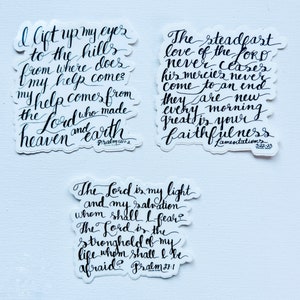 I lift up my eyes
to the hills
from where does
my help come?
my help comes from
the Lord who made
heaven and earth
Psalm 121:1-2
The steadfast
love of the LORD
never ceases
his mercies never
come to an end
they are new
every morning
great is your
faithfulness
Lamentations
3:22-23
The Lord is my light
and my salvation
whom shall I fear?
The Lord is the
stronghold of my
life whom shall I be
afraid? Psalm 27:1